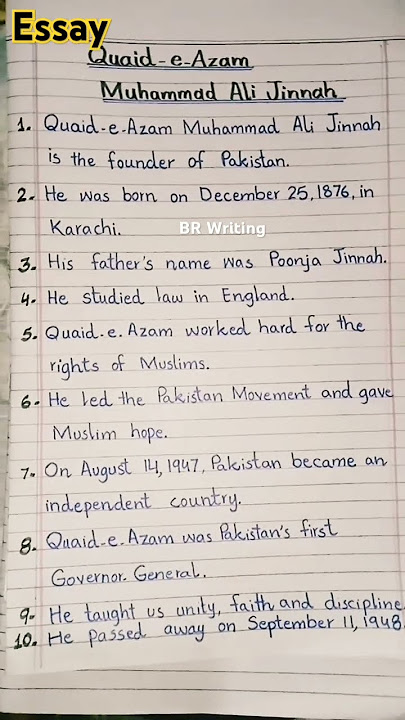 Essay
Quaid-e-Azam
Muhammad Ali Jinnah
1. Quaid-e-Azam Muhammad Ali Jinnah
is the founder of Pakistan.
2. He was born on December 25, 1876, in
Karachi.
BR Writing
3. His father's name was Poonja Jinnah.
4. He studied law in England.
5. Quaid.e.Azam worked hard for the
rights of Muslims.
6. He led the Pakistan Movement and gave
Muslim hope.
7. On August 14, 1947, Pakistan became an
independent country.
8. Quaid-e-Azam was Pakistan's first
Governor.General.
9. He taught us unity, faith and discipline.
10. He passed away on September 11, 1948.